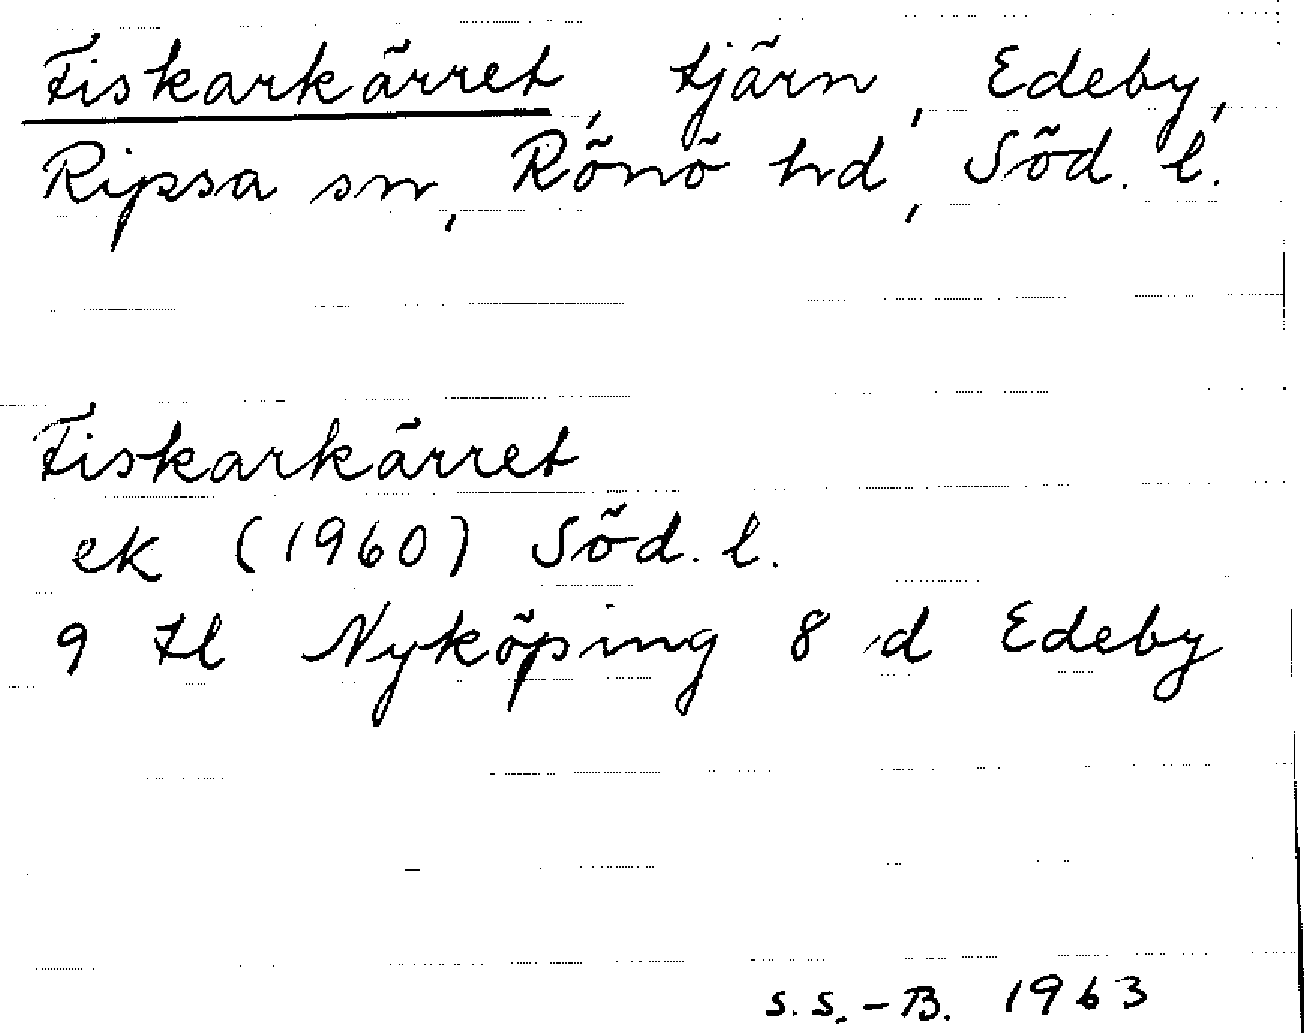 Fiskarkärret, tjärn, Edeby,
Ripsa sn, Rönö hd, Söd. l.
Fiskarkärret
ek (1960) Söd. l.
9 tl Nyköping 8 d Edeby
S.S.-B. 1963